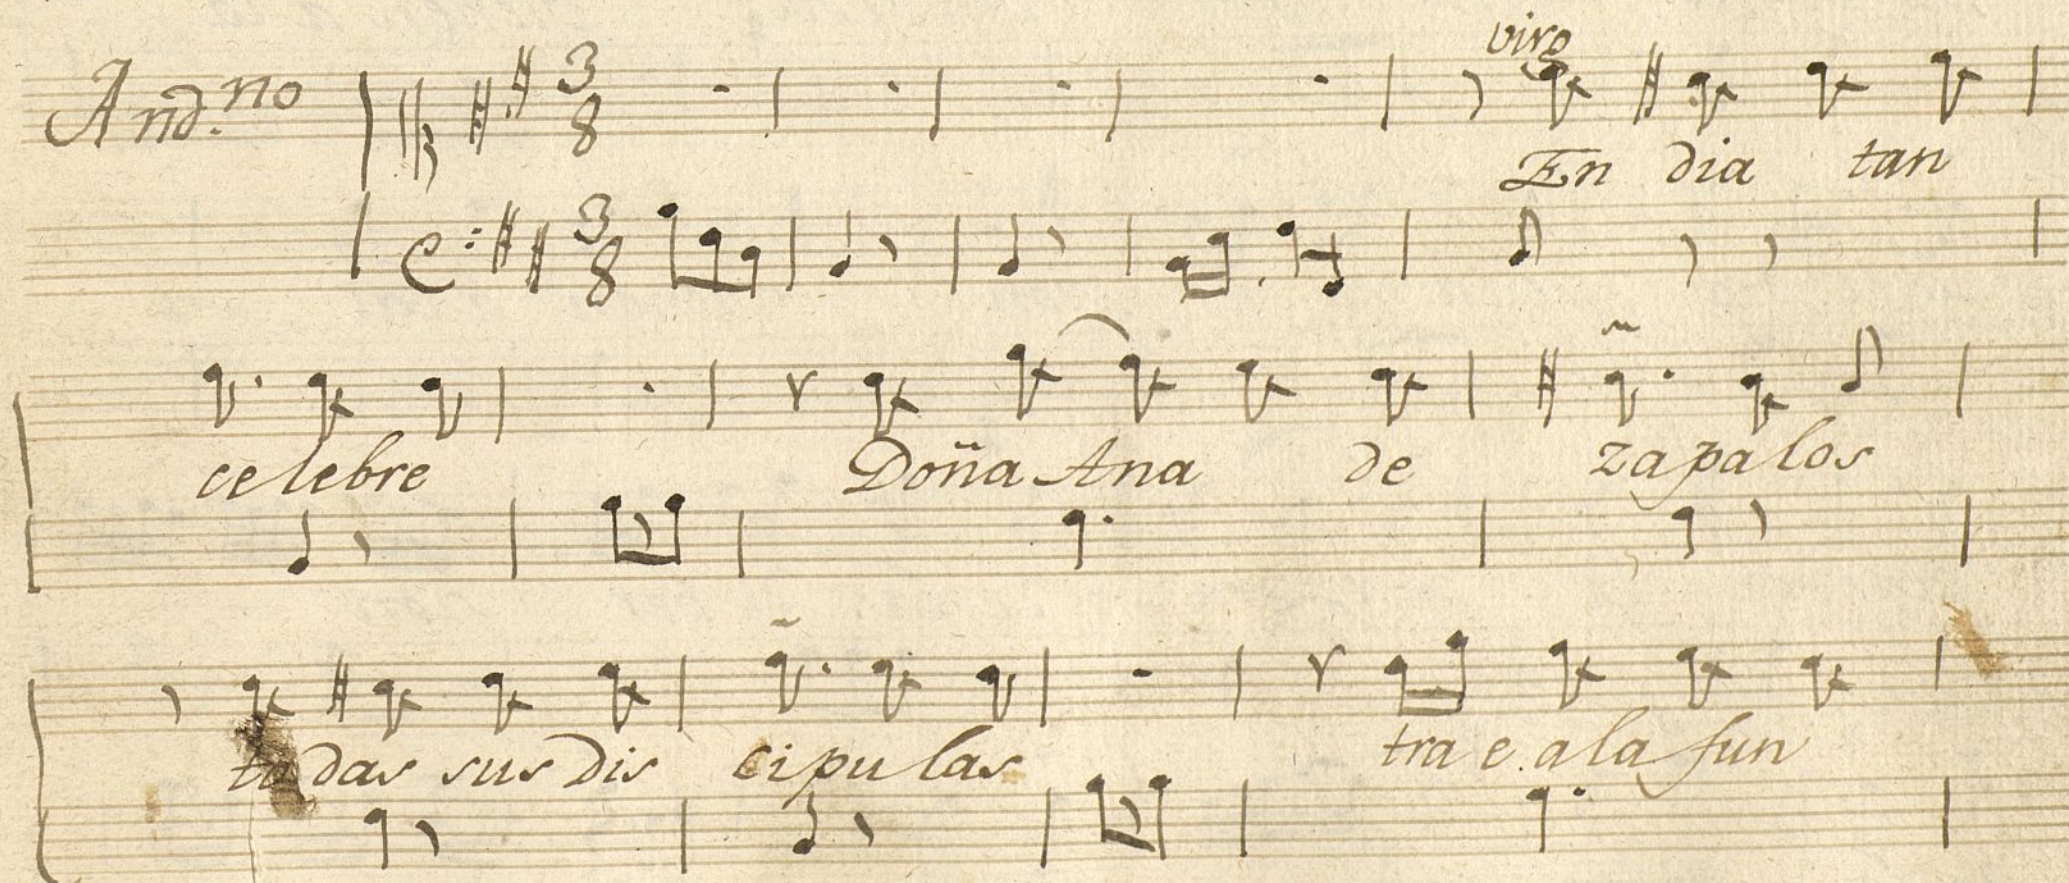 And.no 3 8 viro
En dia tan
3 8
celebre Doña Ana de zapalos
todas sus dis cipu las tra e a la fun